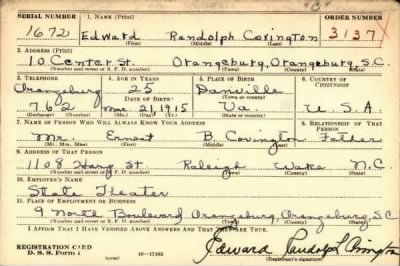 "C"
SERIAL NUMBER 1. NAME (Print) ORDER NUMBER
1672 Edward Randolph Covington 3137
(First) (Middle) (Last)
2. ADDRESS (Print)
10 Center St. Orangeburg, Orangeburg, S.C.
(Number and street or R. F. D. number) (Town) (County) (State)
3. TELEPHONE 4. AGE IN YEARS 5. PLACE OF BIRTH 6. COUNTRY OF CITIZENSHIP
Orangeburg 25 Danville
DATE OF BIRTH (Town or county)
762 21, 1915 Va. U.S.A.
(Exchange) (Number) (Mo.) (Day) (Yr.) (State or country)
7. NAME OF PERSON WHO WILL ALWAYS KNOW YOUR ADDRESS 8. RELATIONSHIP OF THAT PERSON
Mr. Ernest B. Covington Father
(Mr., Mrs., Miss) (First) (Middle) (Last)
9. ADDRESS OF THAT PERSON
1108 St. Raleigh Wake N.C
(Number and street or R. F. D. number) (Town) (County) (State)
10. EMPLOYER'S NAME
State Theater
11. PLACE OF EMPLOYMENT OR BUSINESS
9 North Boulevard Orangeburg, Orangeburg, S.C
(Number and street or R. F. D. number) (Town) (County) (State)
I AFFIRM THAT I HAVE VERIFIED ABOVE ANSWERS AND THAT THEY ARE TRUE.
REGISTRATION CARD
D. S. S. Form 1 (over) 16—17105 Edward Randolph Covington
(Registrant's signature)